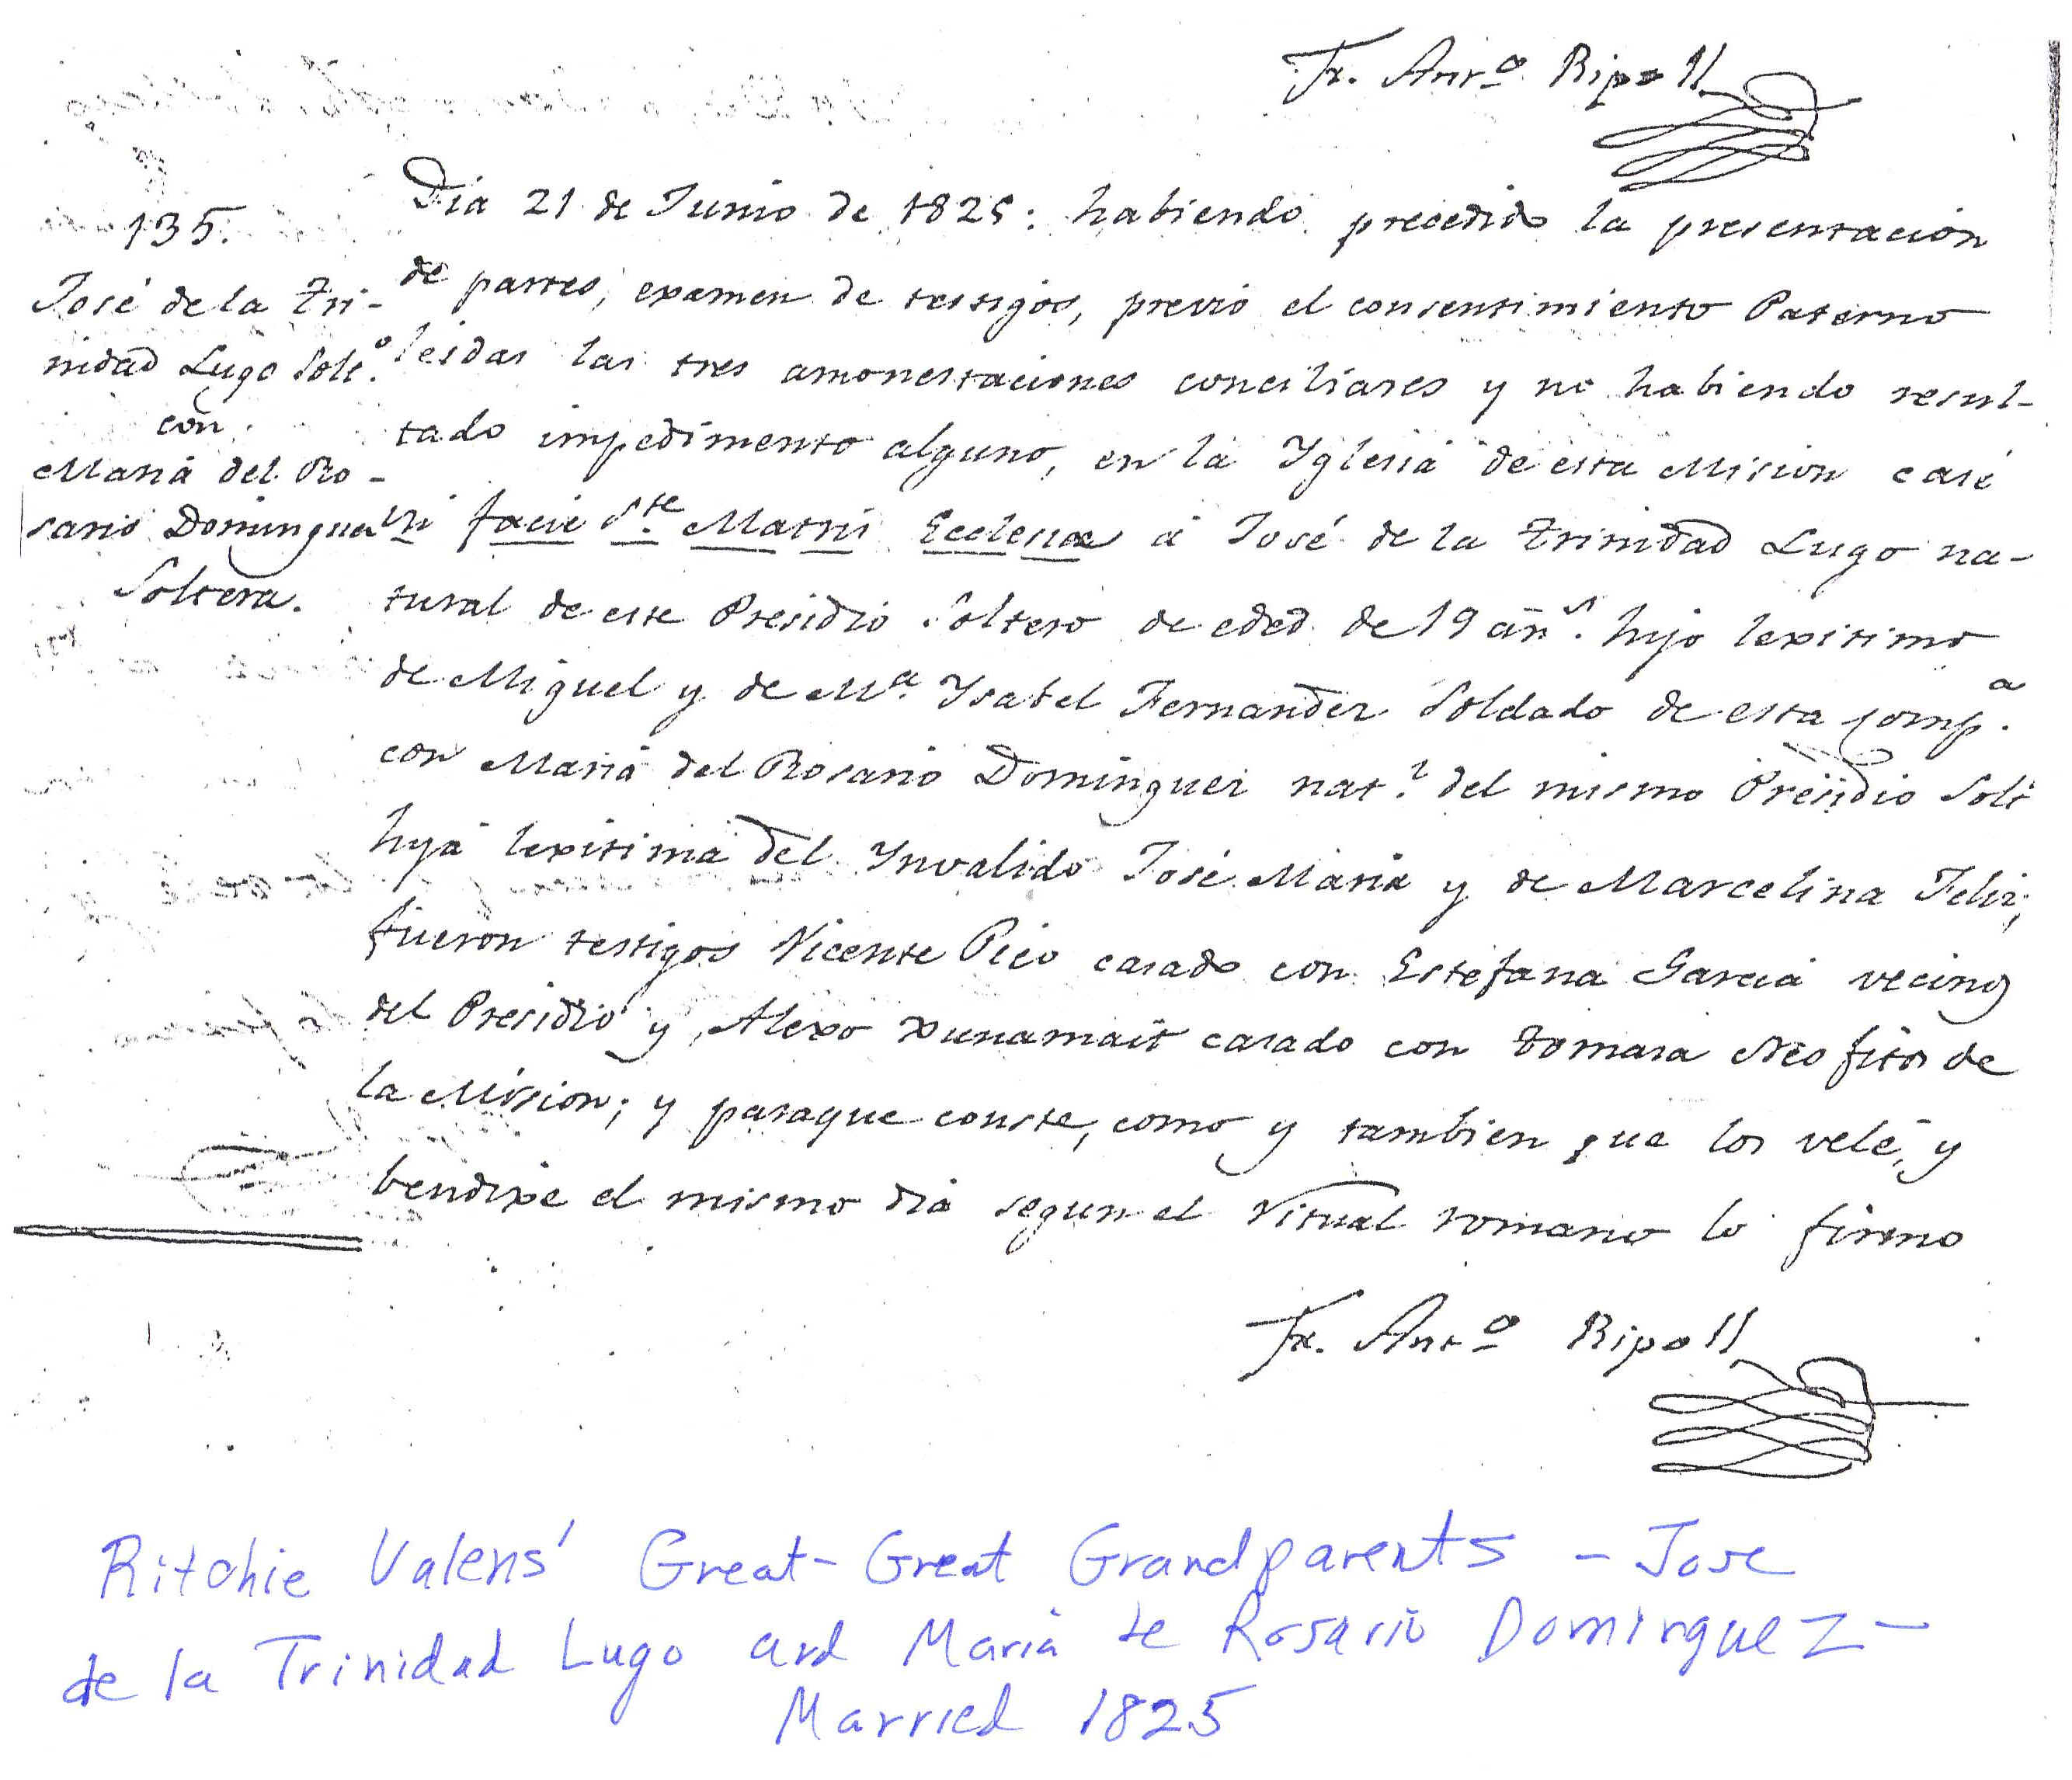 Fr. Anto. Ripoll
135.
José de la Tri-
nidad Lugo Solto.
con
Maria del Ro-
sario Dominguez
Soltera.
Dia 21 de Junio de 1825: habiendo precedido la presentación
de partes, examen de testigos, previo el consentimiento Paterno
leidas las tres amonestaciones conciliares y no habiendo resul-
tado impedimento alguno, en la Yglesia de esta Mision casé
in facie Ste. Matris Ecclesiae á José de la Trinidad Lugo na-
tural de este Presidio Soltero de eded de 19 añs. hijo lexitimo
de Miguel y de Ma. Ysabel Fernandez Soldado de esta Compa.
con Maria del Rosario Dominguez natl. del mismo Presidio Solt
hija lexitima del Ynvalido José Maria y de Marcelina Feliz,
fueron testigos Vicente Pico casado con Estefana Garcia vecinos
del Presidio y Alexo Xunamait casado con Tomasa Neofitos de
la Mision; y paraque conste, como y tambien que los velé, y
bendixe el mismo dia segun el ritual romano lo firmo
Fr. Anto. Ripoll
Ritchie Valens' Great-Great Grandparents - Jose
de la Trinidad Lugo and Maria de Rosario Dominguez -
Married 1825